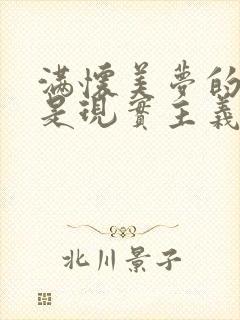 滿懷美夢的
是現實主義
北川景子